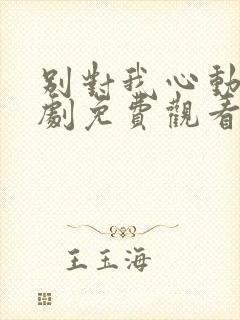 別對我心動
劇免費觀看
王玉海